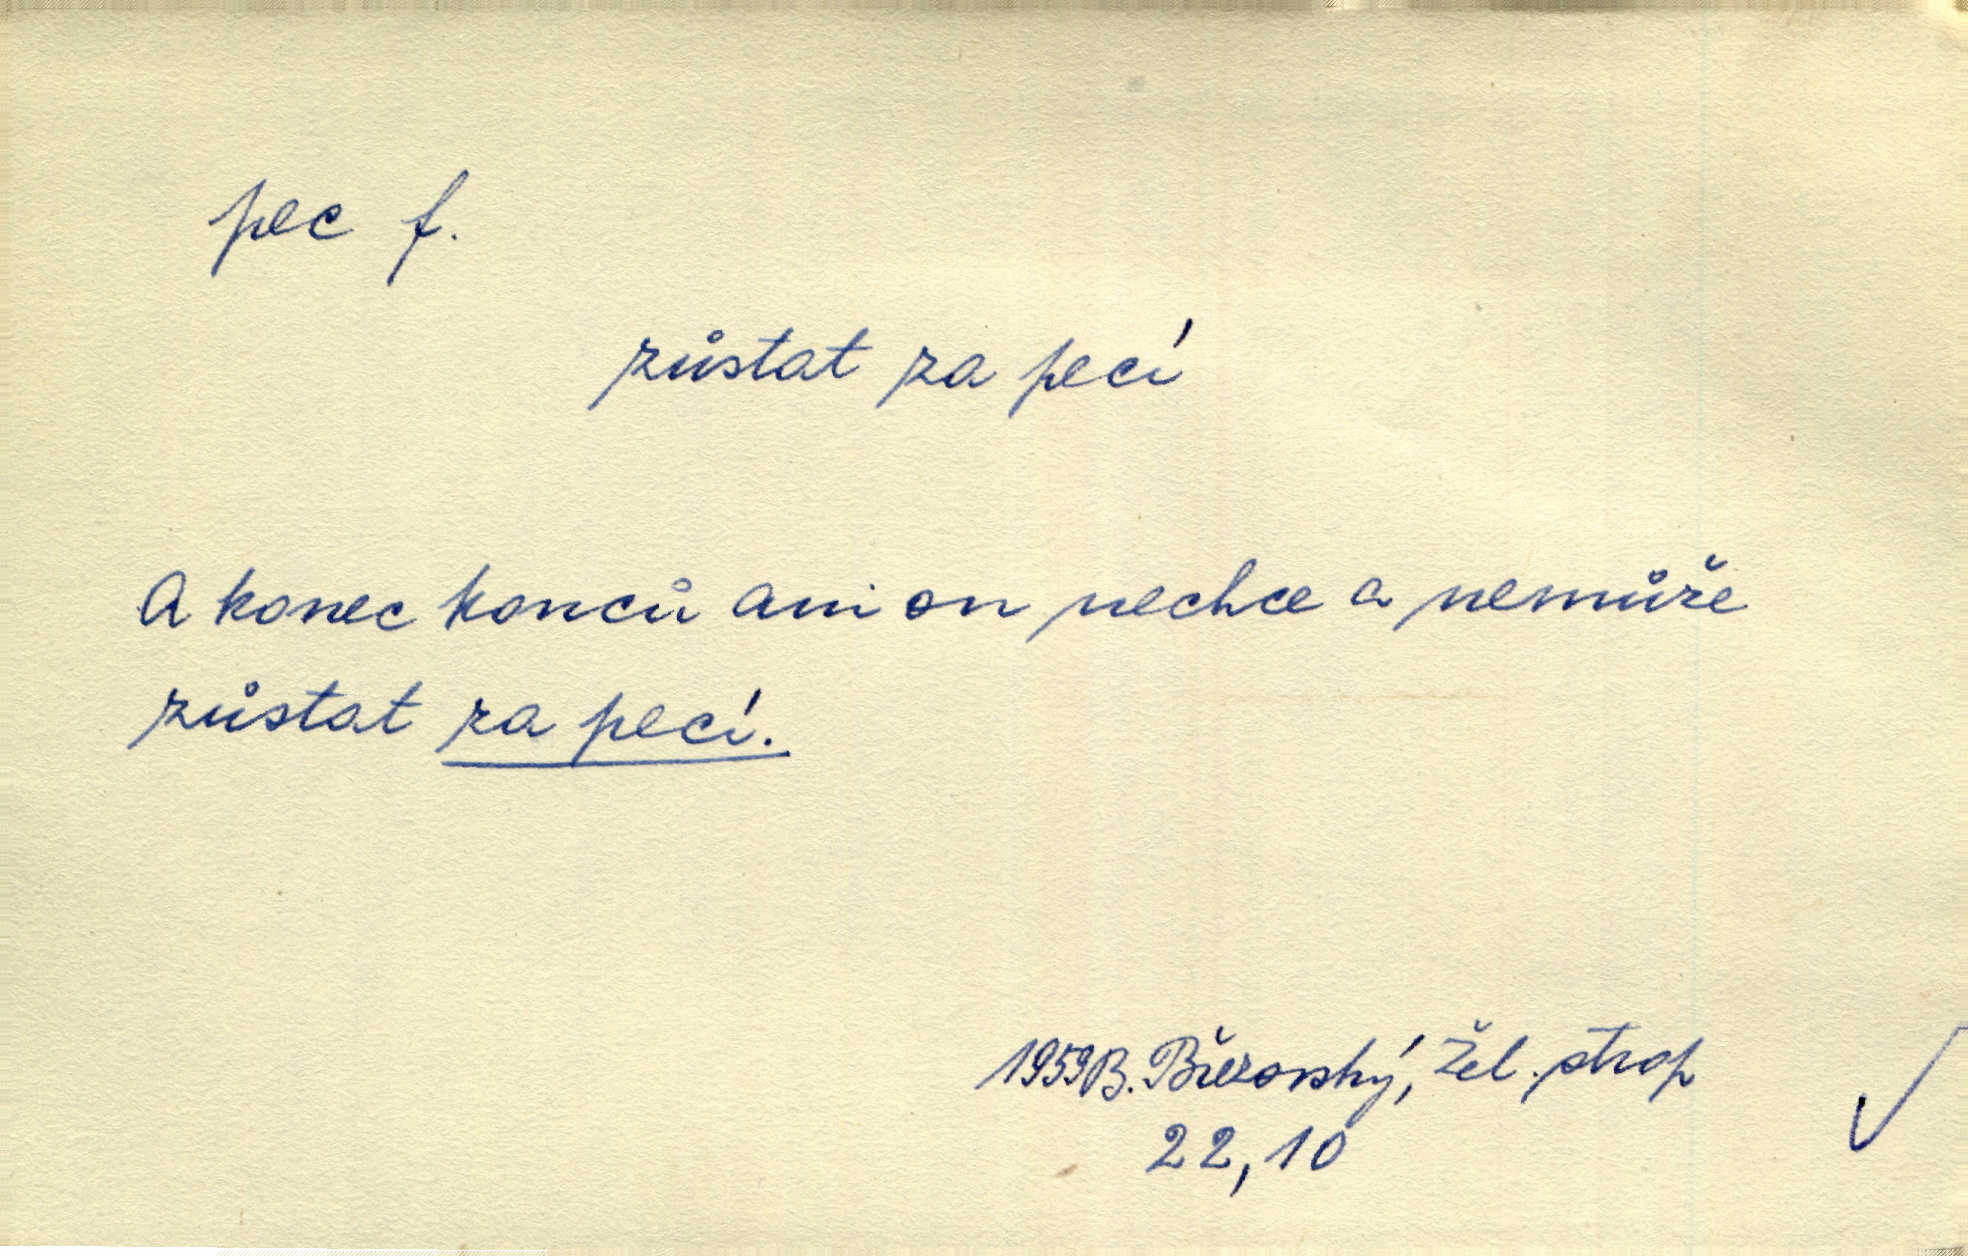 pec f.
zůstat za pecí
A konec konců ani on nechce a nemůže
zůstat za pecí.
1959 B. Březovský, Žel. strop
22,10